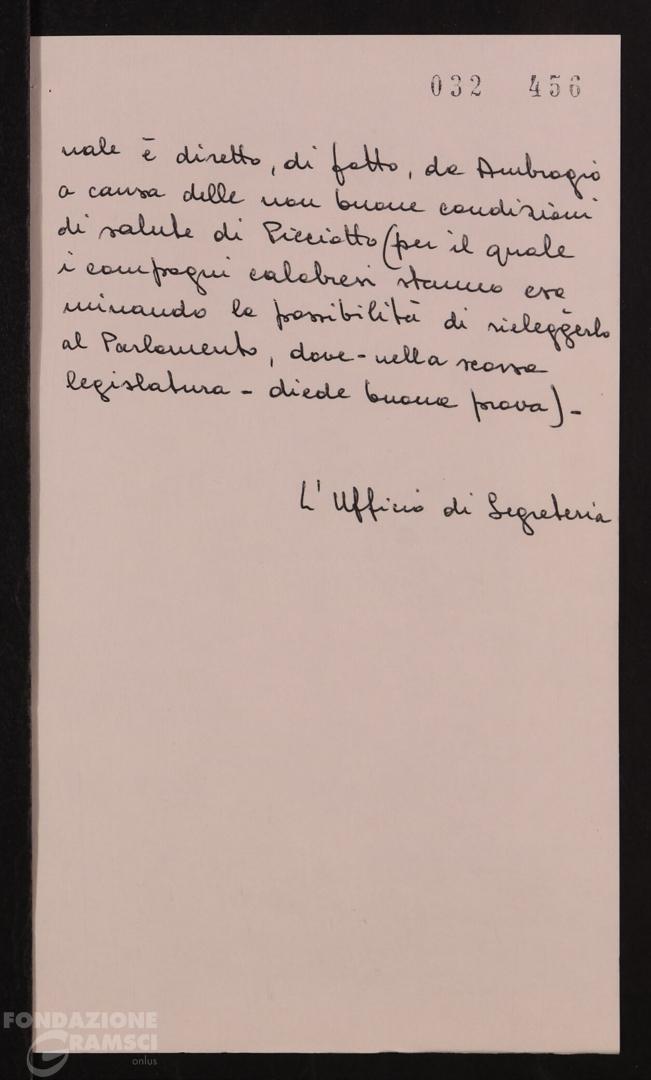 032 456
nale è diretto, di fatto, da Ambrogio
a causa delle non buone condizioni
di salute di Picciotto (per il quale
i compagni calabresi stanno esa
minando la possibilità di rieleggerlo
al Parlamento, dove - nella scorsa
legislatura - diede buona prova) -
L'Ufficio di Segreteria
FONDAZIONE
GRAMSCI
onlus